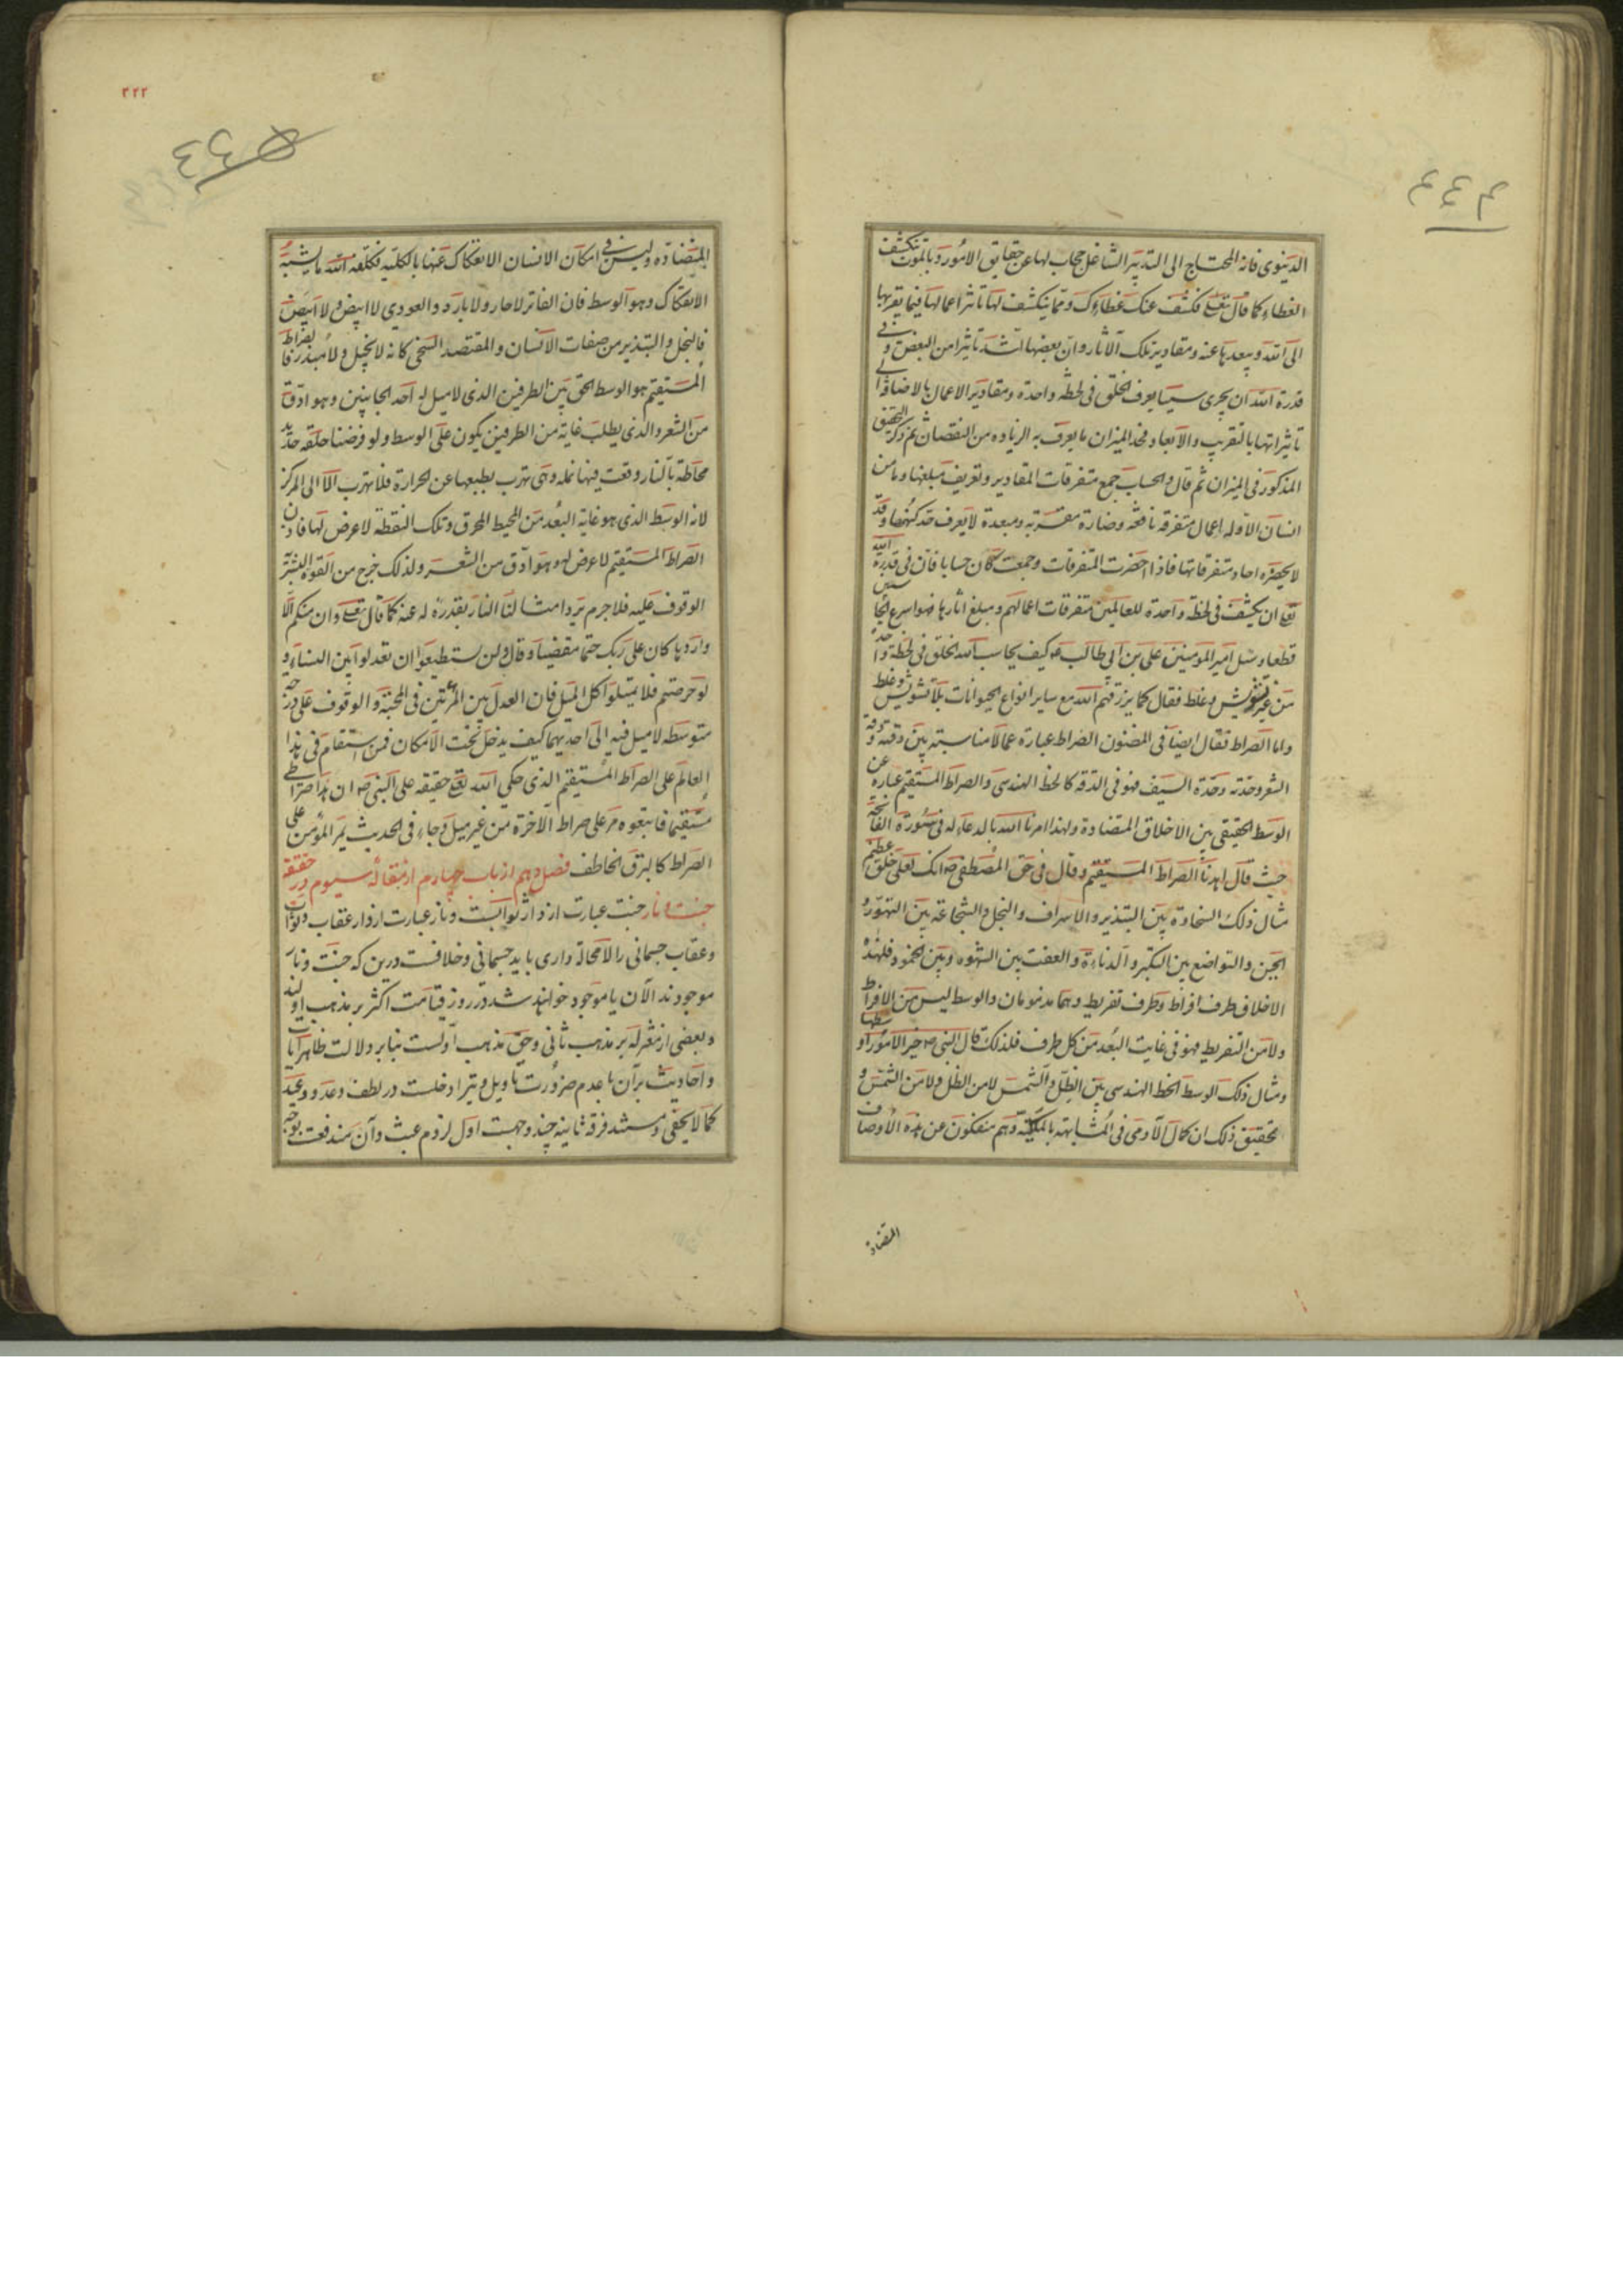 الدنیوی فانه المحتاج الی التدبیر الشاغل حجاب لها عن حقایق الامور و بالموت ینکشف
الغطاء کما قال تعالی فکشفنا عنک غطاءک و مما ینکشف لها تاثیر اعمالها فیما یقربها
الی الله و یبعدها عنه و مقادیر تلک الآثار و ان بعضها اشد تاثیرا من البعض و فی
قدرة الله ان یجری سببا یعرف الخلق فی لحظة واحدة و مقادیر الاعمال بالاضافة الی
تاثیراتها بالتقریب و الابعاد فحد المیزان ما یعرف به الزیاده من النقصان ثم ذکر التحقیق
المذکور فی المیزان ثم قال و الحساب جمع متفرقات المقادیر و تعریف مبلغها و ما من
انسان الا و له اعمال متفرقه نافعه و ضارة مقربه و مبعدة لا یعرف حد کنهها و قد
لا یحصره احاد متفرقاتها فاذا احضرت المتفرقات و جمعت کان حسابا فان فی قدرة الله
تعا ان یکشف فی لحظه واحدة للعالمین متفرقات اعمالهم و مبلغ آثارها فهو اسرع الحاسبین
قطعا و سئل امیر المومنین علی بن ابی طالب ع کیف یحاسب الله الخلق فی لحظة واحدة
من غیر تشویش و غلط فقال کما یرزقهم الله مع سایر انواع الحیوانات بلا تشویش و غلط
و اما الصراط فقال ایضا فی المضنون الصراط عبارة عما لا مناسبته بین دقته و دقة
الشعر و حدته و حدة السیف فهو فی الدقة کالخط الهندسی و الصراط المستقیم عبارة عن
الوسط الحقیقی بین الاخلاق المتضادة و لهذا امرنا الله بالدعاء له فی سورة الفاتحة
حیث قال اهدنا الصراط المستقیم و قال فی حق المصطفی ص انک لعلی خلق عظیم
مثال ذلک السخاوة بین التبذیر و الاسراف و البخل و الشجاعة بین التهور و
الجبن و التواضع بین التکبر و الدناءة و العفت بین الشهوه و بین الخمود فلهذه
الاخلاق طرف افراط و طرف تفریط و هما مذمومان و الوسط لیس من الافراط
و لا من التفریط فهو فی غایت البعد من کل طرف فلذلک قال النبی ص خیر الامور اوسطها
و مثال ذلک الوسط الخط الهندسی بین الظل و الشمس لا من الظل و لا من الشمس و
تحقیق ذلک ان کمال الآدمی فی المشابهة بالملئکة و هم منفکون عن هذه الاوصاف
المتضادة
۳۲۲
المتضاده و لیس فی امکان الانسان الانفکاک عنها بالکلیه فکلفه الله ما یشبه
الانفکاک و هو الوسط فان الفاتر لا حار و لا بارد و العودی لا ابیض و لا اسود
فالبخل و التبذیر من صفات الانسان و المقتصد السخی کانه لا بخیل و لا مبذر فالصراط
المستقیم هو الوسط الحق بین الطرفین الذی لا میل له احد الجانبین و هو ادق
من الشعر و الذی یطلب غایة من الطرفین یکون علی الوسط و لو فرضنا حلقه حدید
محاطة بالنار وقعت فیها نمله و هی تهرب بطبعها عن الحرارة فلا تهرب الا الی المرکز
لانه الوسط الذی هو غایة البعد من المحیط المحرق و تلک النقطة لا عرض لها فاذن
الصراط المستقیم لا عرض له و هو ادق من الشعر و لذلک خرج من القوة البشریة
الوقوف علیه فلا جرم یرد امثالنا النار بقدره له عنه کما قال تعالی و ان منکم الا
واردها کان علی ربک حتما مقضیا و قال و لن تستطیعوا ان تعدلوا بین النساء و
لو حرصتم فلا تمیلوا کل المیل فان العدل بین المرئتین فی المحبة و الوقوف علی درجه
متوسطه لا میل فیه الی احدیهما کیف یدخل تحت الامکان فمن استقام فی هذا
العالم علی الصراط المستقیم الذی حکی الله تعالی حقیقه علی النبی ص ان هذا صراطی
مستقیما فاتبعوه مر علی صراط الآخرة من غیر میل و جاء فی الحدیث یمر المؤمن علی
الصراط کالبرق الخاطف فصل دهم از باب چهارم از مقالهٔ سیوم در حقیقة
جنت و نار جنت عبارت از دار ثوابست و نار عبارت از دار عقاب و ثواب
و عقاب جسمانی را لامحاله داری باید جسمانی و خلافست درین که جنت و نار
موجودند الآن یا موجود خواهند شد در روز قیامت اکثر بر مذهب اولند
و بعضی از معتزله بر مذهب ثانی و حق مذهب اولست بنابر دلالت ظاهر آیات
و احادیث برآن با عدم ضرورت تاویل و نیز ادخلست در لطف وعد و وعید
کما لا یخفی و مستند فرقه ثانیه چند وجهست اول لزوم عبث و آن مندفعست بوجه